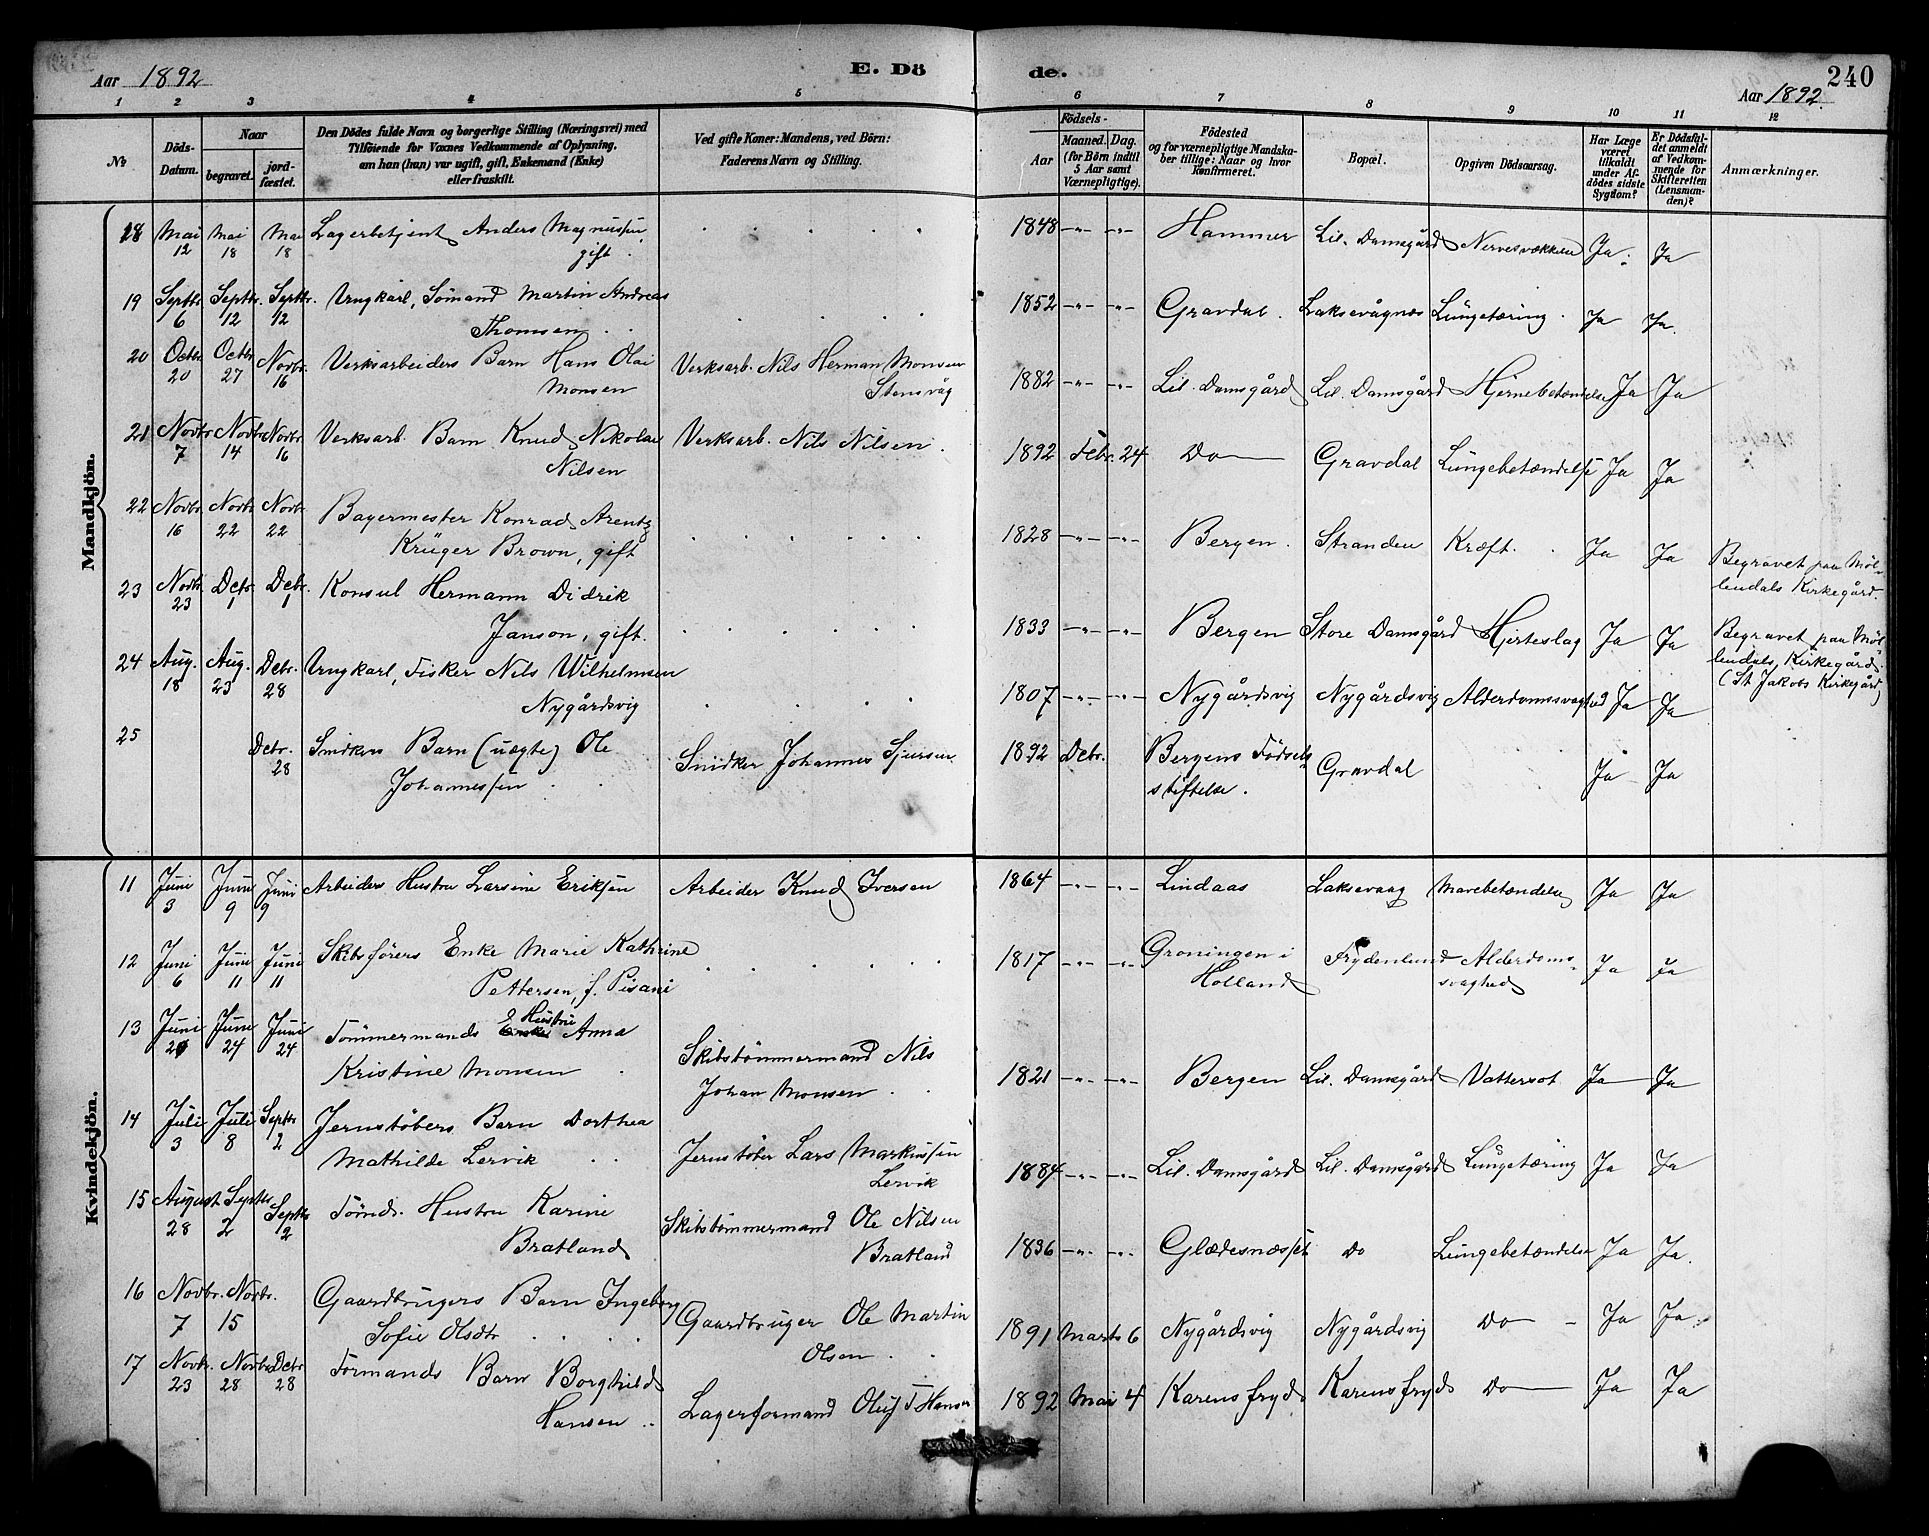 Aar 1892 E. Dö de. Aar 1892. 240
1 2 3 4 5 6 7 8 9 10 11 12
No
Döds-Datum.
Naar
begravet. jord-fæstet.
Den Dödes fulde Navn og borgerlige Stilling (Næringsvei) med
Tilföiende for Voxnes Vedkommende af Oplysning,
om han (hun) var ugift, gift, Enkemand (Enke)
eller fraskilt.
Ved gifte Koner: Mandens, ved Börn:
Faderens Navn og Stilling.
Födsels-
Aar
Maaned. Dag.
(for Börn indtil
5 Aar samt
Værnepligtige).
Födested
og for værnepligtige Mandska-
ber tillige: Naar og hvor
Konfirmeret.
Bopæl.
Opgiven Dödsaarsag.
Har Læge
været
tilkaldt
under Af-
dödes sidste
Sygdom?
Er Dödsfal-
det anmeldt
af Vedkom-
mende for
Skifteretten
(Lensman-
den)?
Anmærkninger.
Mandkjön.
18 Mai 12 Mai 18 Mai 18 Lagerbetjent Anders Magnussen, gift. 1848 -"- -"- Hammer Lil. Damsgård Nervesvækkelse Ja. Ja
19 Septbr. 6 Septbr. 12 Septbr. 12 Ungkarl, Sömand Martin Andreas Thomsen 1852 -"- -"- Gravdal. Laksevågnes Lungetæring. Ja Ja.
20 Octbr. 20 Octbr. 27 Novbr. 16 Verksarbeiders Barn Hans Olai Monsen Verksarb. Nils Herman Monsen Stensvåg 1882 -"- -"- Lil. Damsgård Lil. Damsgård Hjernebetændelse Ja Ja
21 Novbr. 7 Novbr. 14 Novbr. 16 Verksarb. Barn Knud Nikolai Nilsen Verksarb. Nils Nilsen. 1892 Febr. 24 Do Gravdal Lungebetændelse Ja Ja
22 Novbr. 16 Novbr. 22 Novbr. 22 Bagermester Konrad Arentz Krüger Brown, gift 1828 -"- -"- Bergen. Stranden Kræft. Ja Ja Begravet paa Möl-
lendals Kirkegård.
23 Novbr. 23 Decbr. 1 Decbr. 1 Konsul Hermann Didrik Janson, gift. 1833 -"- -"- Bergen Store Damsgård Hjerteslag Ja Ja Begravet paa Möl-
lendals Kirkegård.
(St Jakobs Kirkegård)
24 Aug. 18 Aug. 23 Decbr. 28 Ungkarl, Fisker Nils Wilhelmsen Nygårdsvig 1807 -"- -"- Nygårdsvig Nygårdsvig Alderdomssvaghed Ja Ja
25 Decbr. 28 Snidkers Barn (uægte) Ole Johannessen Snidker Johannes Sjursen 1892 Decbr. Bergens Födsels-
stiftelse. Gravdal Ja Ja
Kvindekjön.
11 Juni 3 Juni 9 Juni 9 Arbeiders Hustru Larsine Eriksen Arbeider Knud Iversen 1864 -"- -"- Lindaas Laksevaag Mavebetændelse Ja Ja
12 Juni 6 Juni 11 Juni 11 Skibsförers Enke Marie Kathrine Pettersen, f. Pisani 1817 -"- -"- Groningen i Holland Frydenlund Alderdoms-
svaghed Ja Ja
13 Juni Juni 24 Juni 24 Tömmermands Enke Hustru Anna Kristine Monsen Skibstömmermand Nils Johan Monsen 1821 -"- -"- Bergen Lil. Damsgård Vattersot Ja Ja
14 Juli 3 Juli 8 Septbr. 2 Jernstöbers Barn Dorthea Mathilde Lervik Jernstöber Lars Markussen Lervik 1884 -"- -"- Lil. Damsgård Lil. Damsgård Lungetæring Ja Ja
15 August 28 Septbr. 2 Septbr. 2 Tömdr. Hustru Karine Bratland Skibstömmermand Ole Nilsen Bratland 1836 -"- -"- Glædesnæsset Do Lungebetændelse Ja Ja.
16 Novbr. 7 Novbr. 15 Gaardbrugers Barn Ingeborg Sofie Olsdtr Gaardbruger Ole Martin Olsen 1891 Marts 6 Nygårdsvig Nygårdsvig Do Ja Ja.
17 Novbr. 23 Novbr. 28 Decbr 28 Formands Barn Borghild Hansen Lagerformand Oluf T Hansen 1892 Mai 4 Karensfryd Karensfryd Do Ja Ja